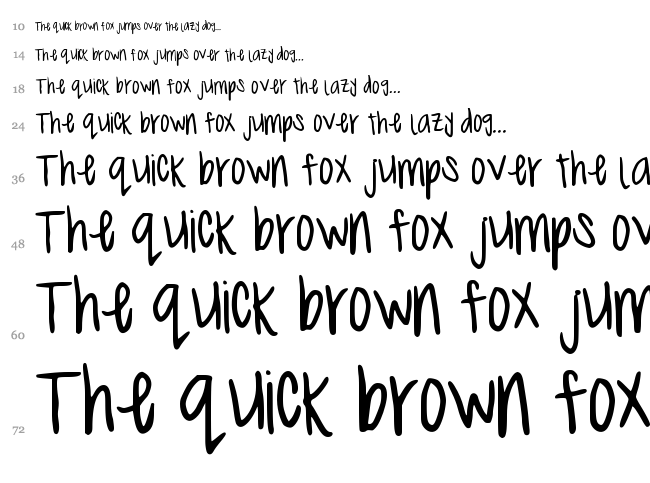 10 The quick brown fox jumps over the lazy dog...
14 The quick brown fox jumps over the lazy dog...
18 The quick brown fox jumps over the lazy dog...
24 The quick brown fox jumps over the lazy dog...
36 The quick brown fox jumps over the la
48 The quick brown fox jumps ov
60 The quick brown fox jum
72 The quick brown fox